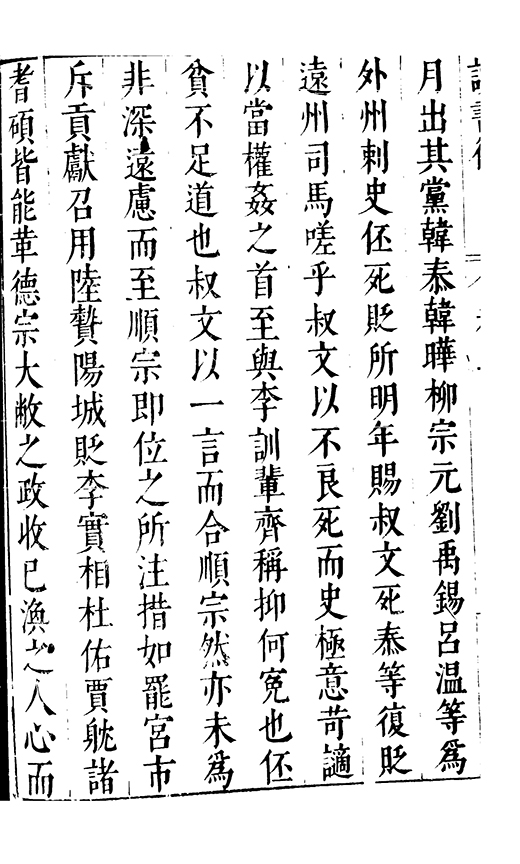 讀書後
月出其黨韓泰韓曄柳宗元劉禹錫呂溫等爲
外州刺史伾死貶所明年賜叔文死泰等復貶
遠州司馬嗟乎叔文以不良死而史極意苛謫
以當權姦之首至與李訓輩齊稱抑何寃也伾
貧不足道也叔文以一言而合順宗然亦未爲
非深遠慮而至順宗即位之所注措如罷宮市
斥貢獻召用陸贄陽城貶李實相杜佑賈躭諸
耆碩皆能革德宗大敝之政收已渙之人心而